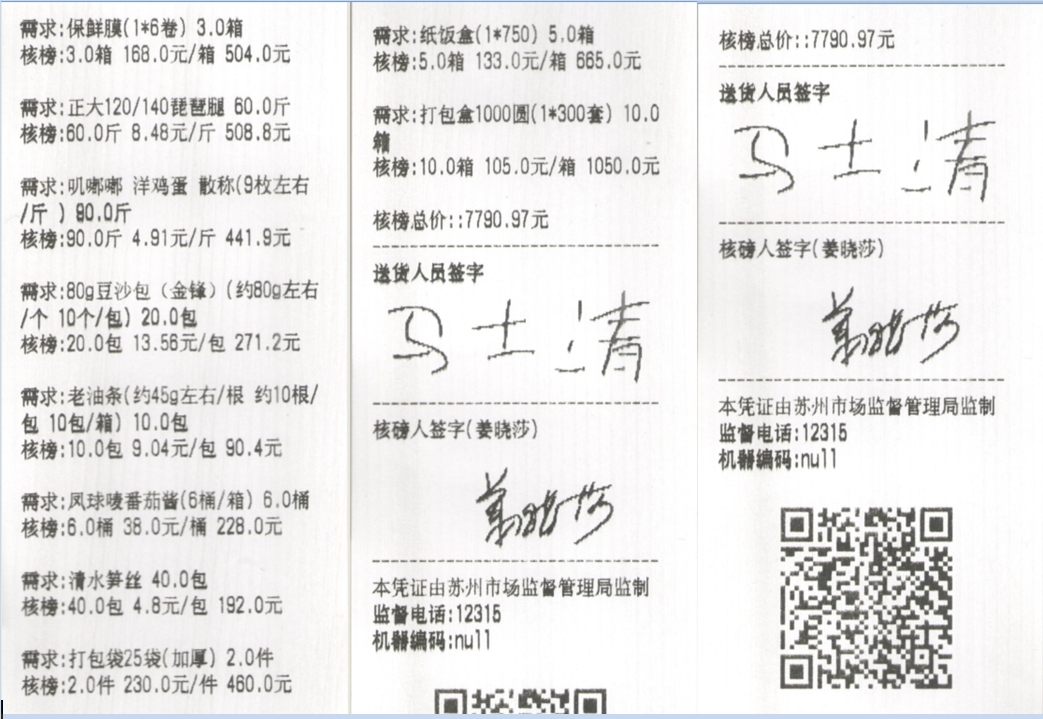 需求:保鲜膜(1*6卷) 3.0箱
核榜:3.0箱 168.0元/箱 504.0元
需求:正大120/140琵琶腿 60.0斤
核榜:60.0斤 8.48元/斤 508.8元
需求:叽嘟嘟 洋鸡蛋 散称(9枚左右
/斤 ) 90.0斤
核榜:90.0斤 4.91元/斤 441.9元
需求:80g豆沙包（金锋）(约80g左右
/个 10个/包) 20.0包
核榜:20.0包 13.56元/包 271.2元
需求:老油条(约45g左右/根 约10根/
包 10包/箱) 10.0包
核榜:10.0包 9.04元/包 90.4元
需求:凤球唛番茄酱(6桶/箱) 6.0桶
核榜:6.0桶 38.0元/桶 228.0元
需求:清水笋丝 40.0包
核榜:40.0包 4.8元/包 192.0元
需求:打包袋25袋(加厚) 2.0件
核榜:2.0件 230.0元/件 460.0元
需求:纸饭盒(1*750) 5.0箱
核榜:5.0箱 133.0元/箱 665.0元
需求:打包盒1000圆(1*300套) 10.0
箱
核榜:10.0箱 105.0元/箱 1050.0元
核榜总价::7790.97元
送货人员签字
马士清
核磅人签字(姜晓莎)
姜晓莎
本凭证由苏州市场监督管理局监制
监督电话:12315
机器编码:null
核榜总价::7790.97元
送货人员签字
马士清
核磅人签字(姜晓莎)
姜晓莎
本凭证由苏州市场监督管理局监制
监督电话:12315
机器编码:null